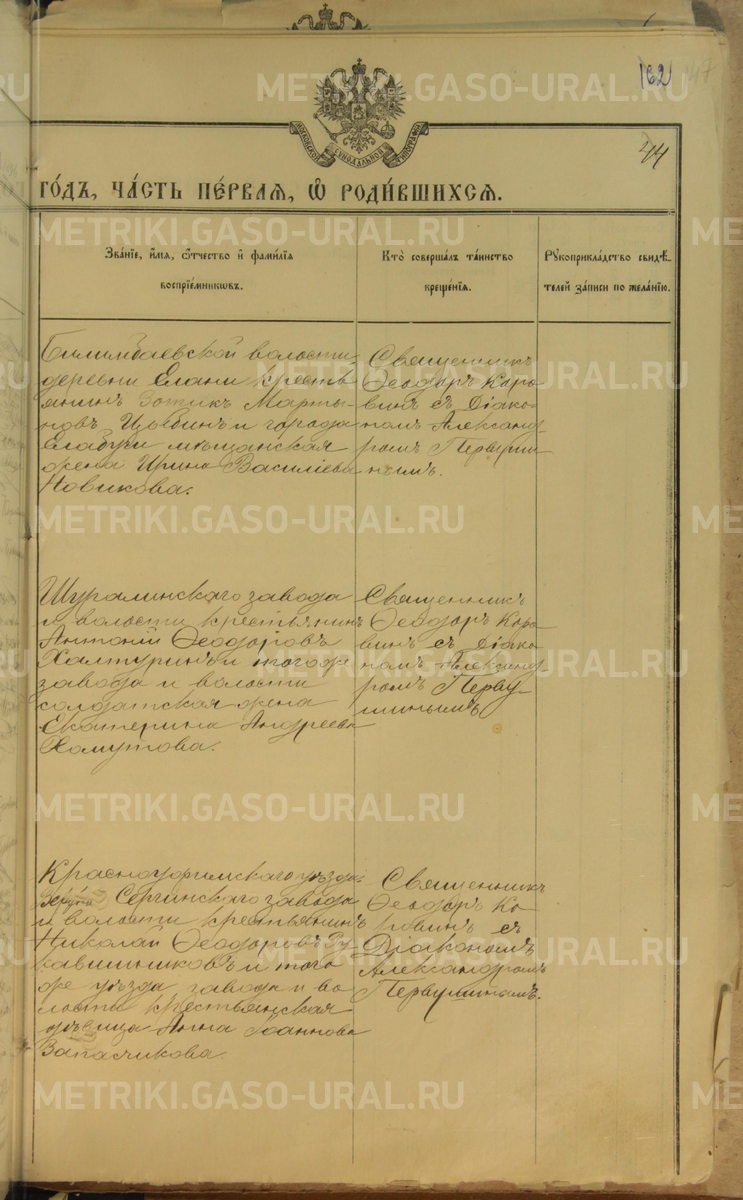 162 47
44
МОСКОВСКОЙ СѴНОДАЛЬНОЙ ТИПОГРАФІИ
ГО́ДЪ, ЧА́СТЬ ПЕ́РВАЯ, Ѽ РОДИ́ВШИХСЯ.
Зва́ніе, и҆́мя, ѻ҆́тчество и҆ фами́лія
воспріе́мниковъ.
Кто̀ соверша́лъ та́инство
креще́нія.
Рꙋкоприкла́дство свидѣ́-
телей за́писи по жела́нію.
Билимбаевской волости
деревни Елани кресть
янинъ Зотикъ Марты-
новъ и города
Елабуги мѣщанская
жена Ирина Василіева
Новикова.
Священникъ
Ѳеодоръ Коро
винъ съ Діако-
номъ Александ
ромъ Первуши
нымъ.
Шуралинскаго завода
и волости крестьянинъ
Антоній Ѳеодоровъ
Халтуринъ и того же
завода и волости
солдатская жена
Екатерина Андреева
Хомутова.
Священникъ
Ѳеодоръ Коро
винъ съ Діако
номъ Александ
ромъ Перву-
шинымъ
Красноуфимскаго уѣзда
Сергинскаго завода
и волости крестьянинъ
Николай Ѳеодоровъ Ру
кавишниковъ и того
же уѣзда завода и во
лости крестьянская
дѣвица Анна Іоаннова
Запасчикова.
Священникъ
Ѳеодоръ Ко-
ровинъ съ
Діакономъ
Александромъ
Первушинымъ.
METRIKI.GASO-URAL.RU